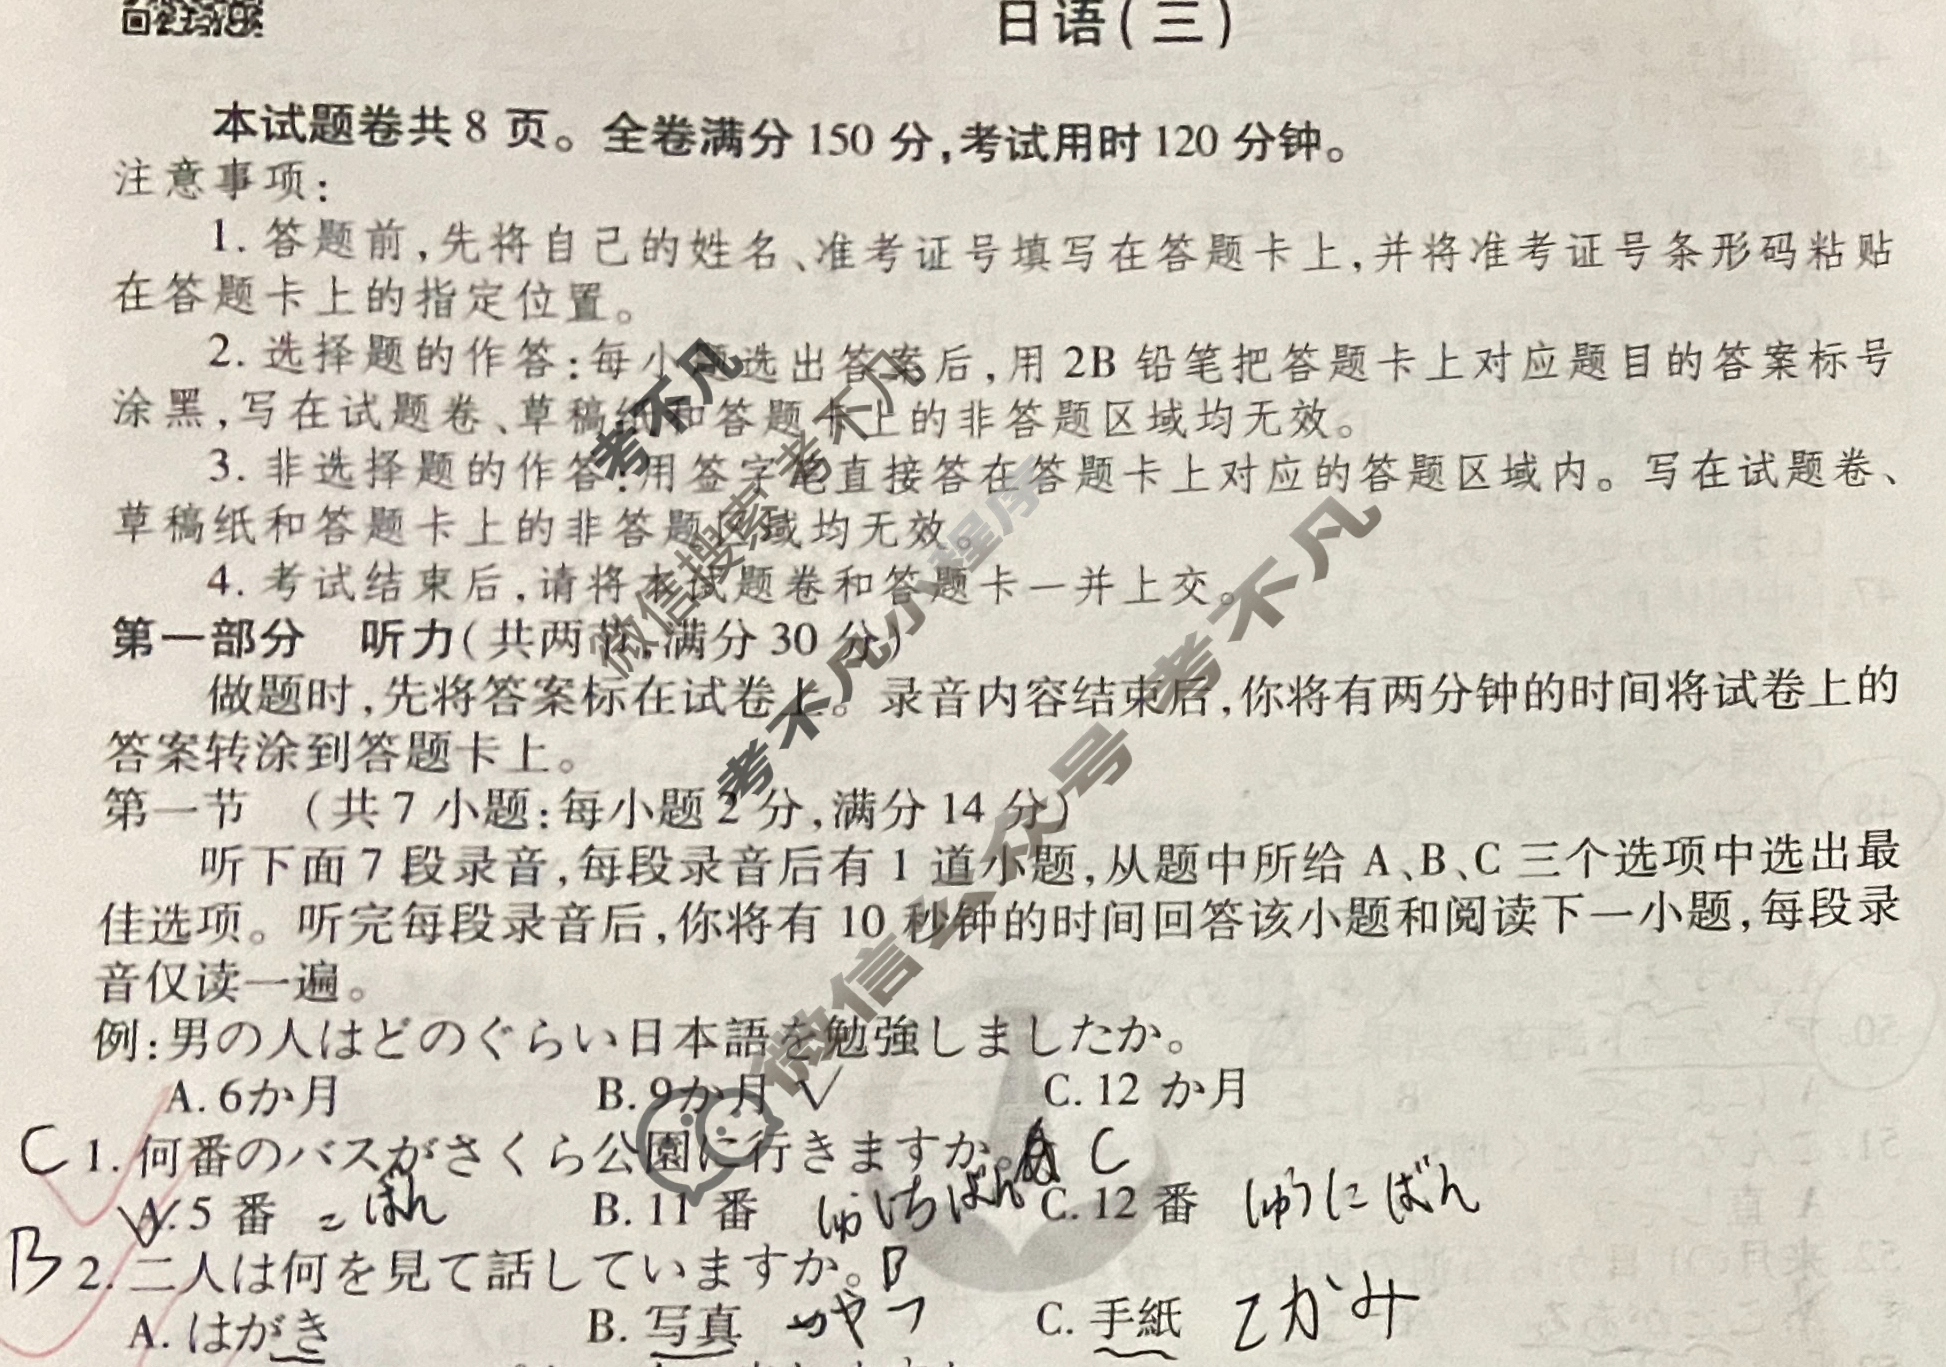 日语(三)
本试题卷共8页。全卷满分150分,考试用时120分钟。
注意事项:
1. 答题前,先将自己的姓名、准考证号填写在答题卡上,并将准考证号条形码粘贴
在答题卡上的指定位置。
2. 选择题的作答:每小题选出答案后,用2B铅笔把答题卡上对应题目的答案标号
涂黑,写在试题卷、草稿纸和答题卡上的非答题区域均无效。
3. 非选择题的作答:用签字笔直接答在答题卡上对应的答题区域内。写在试题卷、
草稿纸和答题卡上的非答题区域均无效。
4. 考试结束后,请将本试题卷和答题卡一并上交。
第一部分 听力(共两节,满分30分)
做题时,先将答案标在试卷上。录音内容结束后,你将有两分钟的时间将试卷上的
答案转涂到答题卡上。
第一节 (共7小题:每小题2分,满分14分)
听下面7段录音,每段录音后有1道小题,从题中所给A、B、C三个选项中选出最
佳选项。听完每段录音后,你将有10秒钟的时间回答该小题和阅读下一小题,每段录
音仅读一遍。
例:男の人はどのぐらい日本語を勉強しましたか。
A. 6か月 B. 9か月 √ C. 12か月
C 1. 何番のバスがさくら公園に行きますか。 C
A. 5番 ごばん B. 11番 C. 12番 じゅうにばん
B 2. 二人は何を見て話していますか。B
A. はがき B. 写真 C. 手紙 てがみ
考不凡
微信搜索 考不凡
考不凡小程序
微信公众号 考不凡